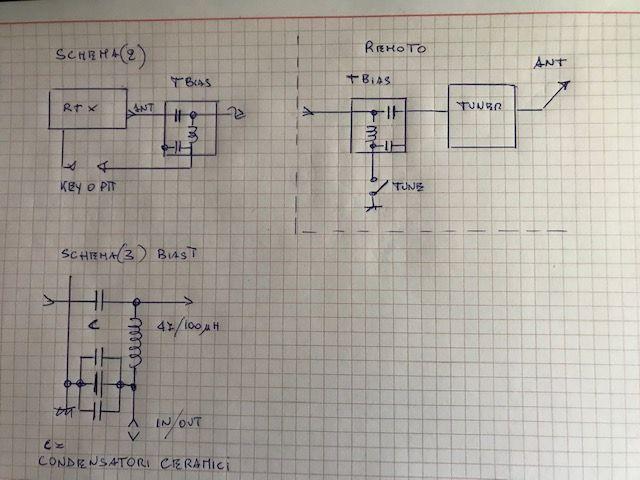 SCHEMA(2)
T BIAS
RTX
ANT
KEY O PTT
REMOTO
T BIAS
TUNER
ANT
TUNE
SCHEMA(3) BIAS T
C
47/100µH
IN/OUT
C=
CONDENSATORI CERAMICI